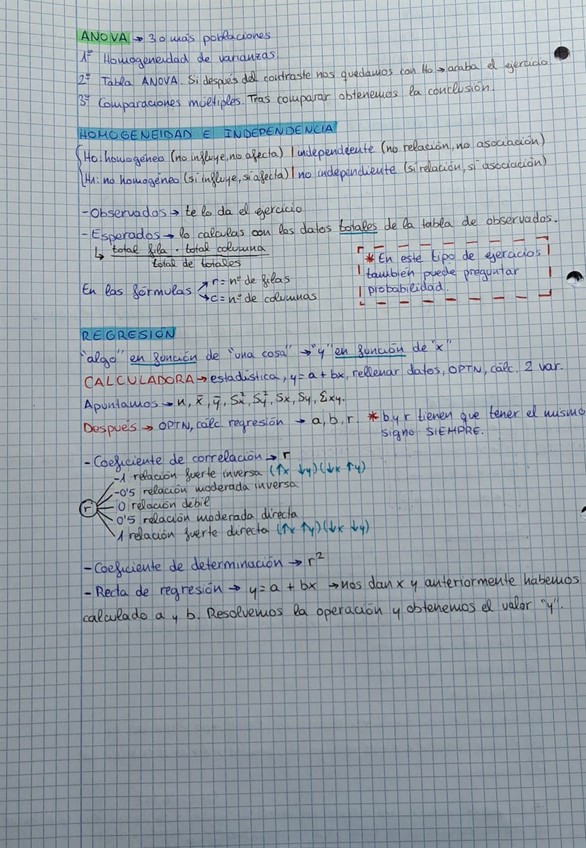 ANOVA → 3 o más poblaciones
1º Homogeneidad de varianzas.
2º Tabla ANOVA. Si después del contraste nos quedamos con Ho → acaba el ejercicio.
3º Comparaciones múltiples. Tras comparar obtenemos la conclusión.
HOMOGENEIDAD E INDEPENDENCIA
Ho: homogénea (no influye, no afecta) | independiente (no relación, no asociación)
H1: no homogénea (si influye, si afecta) | no independiente (si relación, si asociación)
- Observados → te lo da el ejercicio
- Esperados → lo calculas con los datos totales de la tabla de observados.
↳ total fila · total columna
total de totales
* En este tipo de ejercicios
también puede preguntar
probabilidad.
En las fórmulas ↗ r = nº de filas
↘ c = nº de columnas
REGRESIÓN
"algo" en función de "una cosa" → "y" en función de "x"
CALCULADORA → estadística, y = a + bx, rellenar datos, OPTN, cálc. 2 var.
Apuntamos → n, x̄, ȳ, Sx², Sy², Sx, Sy, Σxy.
Después → OPTN, cálc regresión → a, b, r. * b y r tienen que tener el mismo
signo SIEMPRE.
- Coeficiente de correlación → r
-1 relación fuerte inversa (↑x ↓y) (↓x ↑y)
-0'5 relación moderada inversa
r 0 relación débil
0'5 relación moderada directa
1 relación fuerte directa (↑x ↑y) (↓x ↓y)
- Coeficiente de determinación → r²
- Recta de regresión → y = a + bx → nos dan x y anteriormente habemos
calculado a y b. Resolvemos la operación y obtenemos el valor "y".